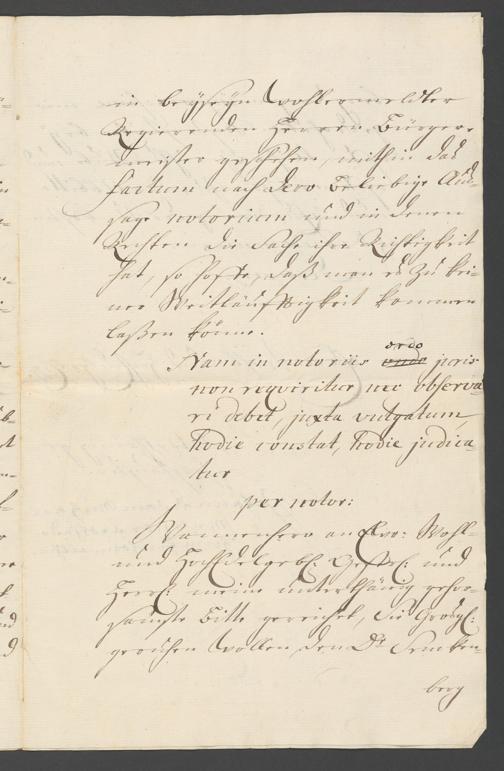 in beyseyn Wohlermeldten
Regierenden Herren Bürger-
meister geschehen, mithin das
factum nach dero beliebige Aus-
sage notorium und in denen
Rechten die Sache ihre Richtigkeit
hat, so hoffe, daß man es zu kei-
ner Weitläufftigkeit kommen
laßen könne.
Nam in notoriis ordo juris
non reqviritur nec observa-
ri debet, juxta vulgatum,
hodie constat, hodie judica-
tur
per notor:
Wannenhero an Ewr: Wohl-
und HochEdelgebl: Gestr: und
Herrl: meine unterthänig gehor-
samste Bitte gereichet, die
geruhen wollen, den Dr. Sencken-
berg